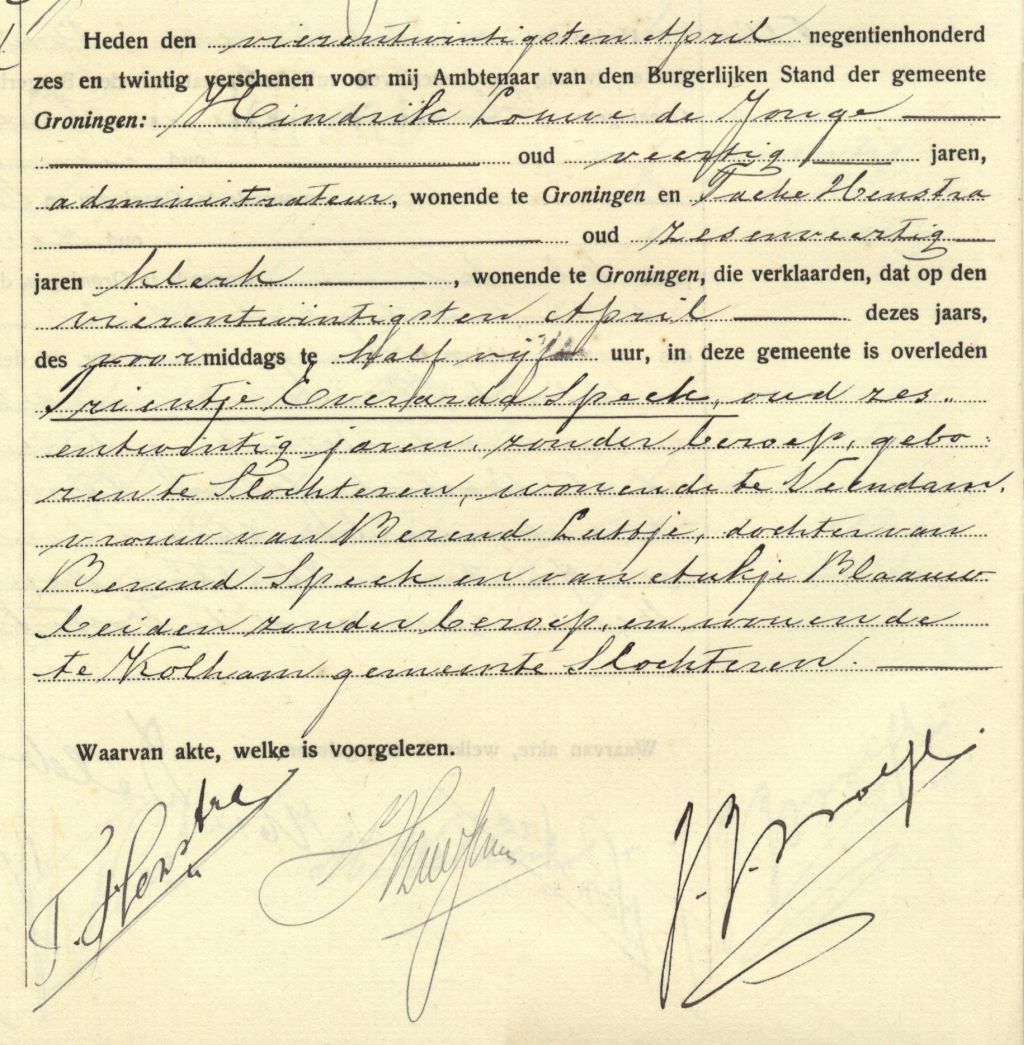 Heden den vierentwintigsten April negentienhonderd
zes en twintig verschenen voor mij Ambtenaar van den Burgerlijken Stand der gemeente
Groningen: Hindrik Louwe de Jonge
oud veertig jaren,
administrateur, wonende te Groningen en Tacke Henstra
oud zesenveertig
jaren klerk, wonende te Groningen, die verklaarden, dat op den
vierentwintigsten April dezes jaars,
des voormiddags te half vijf uur, in deze gemeente is overleden
Trientje Everarda Speck, oud zes„
entwintig jaren, zonder beroep, gebo„
ren te Slochteren, wonende te Veendam,
vrouw van Berend Lubbje, dochter van
Berend Speck en van Aukje Blaauw
beiden zonder beroep, en wonende
te Kolham gemeente Slochteren.
Waarvan akte, welke is voorgelezen.
T. Henstra